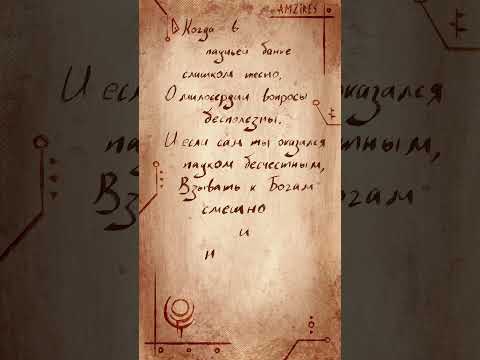 AMZIRES
Когда в
паучьей банке
слишком тесно,
О милосердии вопросы
бесполезны.
И если сам ты оказался
пауком бесчестным,
Взывать к Богам
смешно
и
н